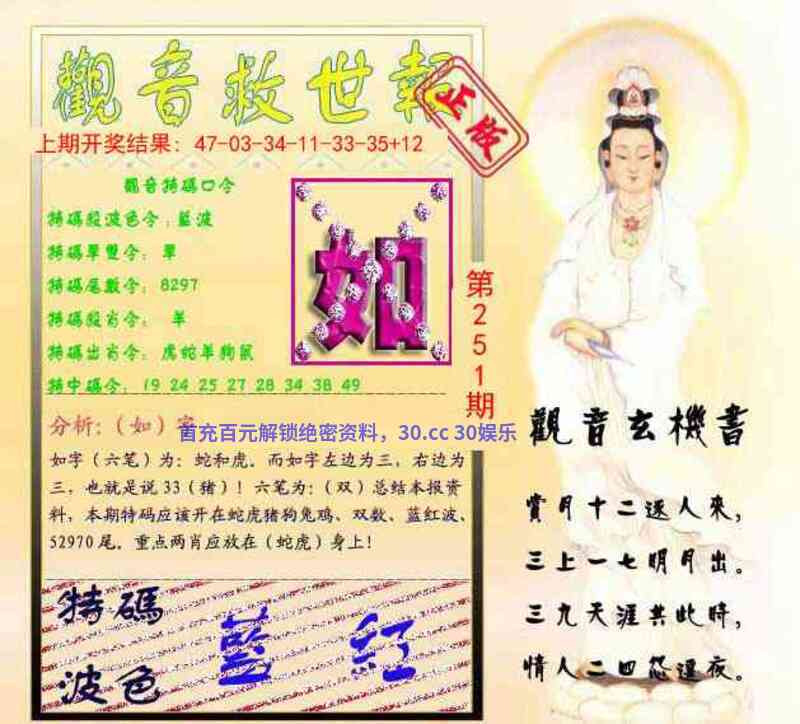 觀音救世報
正版
上期开奖结果：47-03-34-11-33-35+12
觀音特碼口令
特碼殺波色令：藍波
特碼單雙令：單
特碼尾數令：8297
特碼殺肖令：羊
特碼出肖令：虎蛇羊狗鼠
特中碼令：19 24 25 27 28 34 38 49
如
第251期
分析：（如）字
首充百元解锁绝密资料，30.cc 30娱乐
如字（六笔）为：蛇和虎。而如字左边为三，右边为
三，也就是说33（猪）！六笔为：（双）总结本报资
料，本期特码应该开在蛇虎猪狗兔鸡、双数、蓝红波、
52970尾。重点两肖应放在（蛇虎）身上！
特碼
波色
藍 紅
觀音玄機書
賞月十二逐人來，
三上一七明月出。
三九天涯共此時，
情人二四怨遥夜。